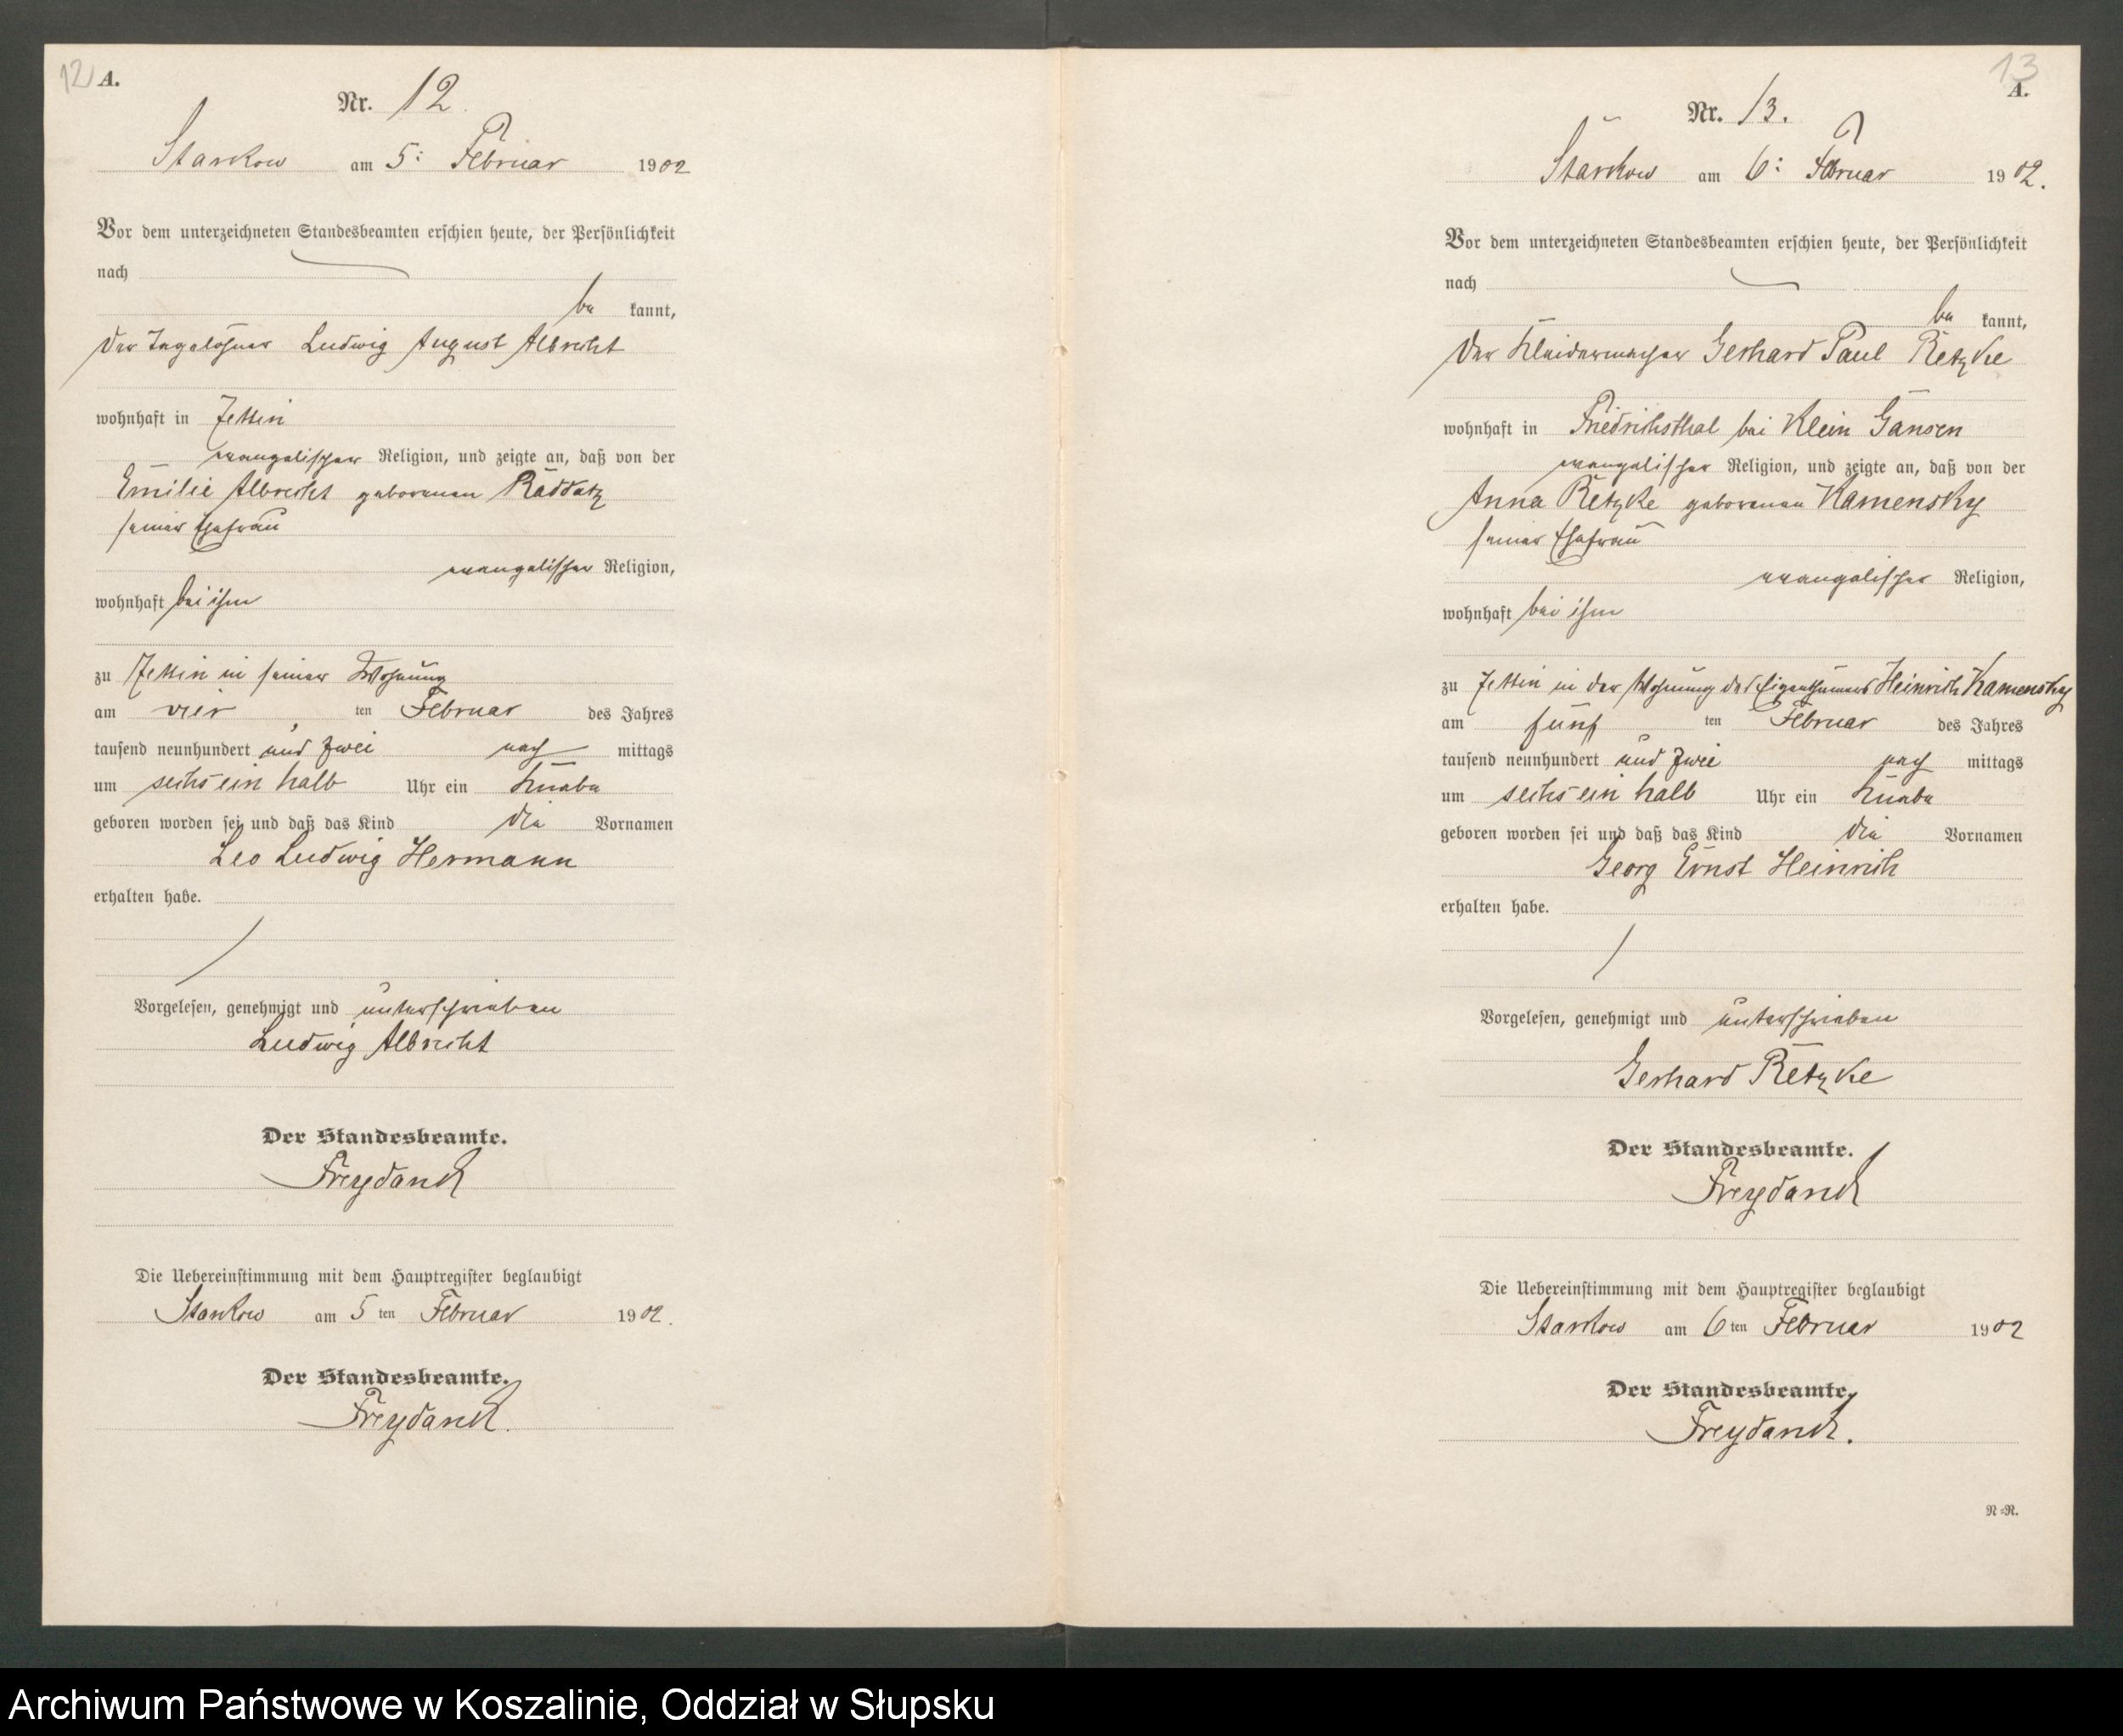 12 A.
Nr. 12.
Starkow am 5: Februar 1902
Vor dem unterzeichneten Standesbeamten erschien heute, der Persönlichkeit
nach
be kannt,
der Tagelöhner Ludwig August Albrecht
wohnhaft in Jettin
evangelischer Religion, und zeigte an, daß von der
Emilie Albrecht geborenen Raddatz
seiner Ehefrau
evangelischer Religion,
wohnhaft bei ihm
zu Jettin in seiner Wohnung
am vier ten Februar des Jahres
tausend neunhundert und zwei nach mittags
um sechs ein halb Uhr ein Knabe
geboren worden sei und daß das Kind die Vornamen
Leo Ludwig Hermann
erhalten habe.
Vorgelesen, genehmigt und unterschrieben
Ludwig Albrecht
Der Standesbeamte.
Freydanck
Die Uebereinstimmung mit dem Hauptregister beglaubigt
Starkow am 5 ten Februar 1902.
Der Standesbeamte.
Freydanck.
13
A.
Nr. 13.
Starkow am 6: Februar 1902.
Vor dem unterzeichneten Standesbeamten erschien heute, der Persönlichkeit
nach
be kannt,
der Kleidermacher Gerhard Paul Retzke
wohnhaft in Friedrichsthal bei Klein Gansen
evangelischer Religion, und zeigte an, daß von der
Anna Retzke geborenen Kamensky
seiner Ehefrau
evangelischer Religion,
wohnhaft bei ihm
zu Jettin in der Wohnung des Eigenthümers Heinrich Kamensky
am fünf ten Februar des Jahres
tausend neunhundert und zwei nach mittags
um sechs ein halb Uhr ein Knabe
geboren worden sei und daß das Kind die Vornamen
Georg Ernst Heinrich
erhalten habe.
Vorgelesen, genehmigt und unterschrieben
Gerhard Retzke
Der Standesbeamte.
Freydanck
Die Uebereinstimmung mit dem Hauptregister beglaubigt
Starkow am 6 ten Februar 1902
Der Standesbeamte.
Freydanck.
N=R.
Archiwum Państwowe w Koszalinie, Oddział w Słupsku